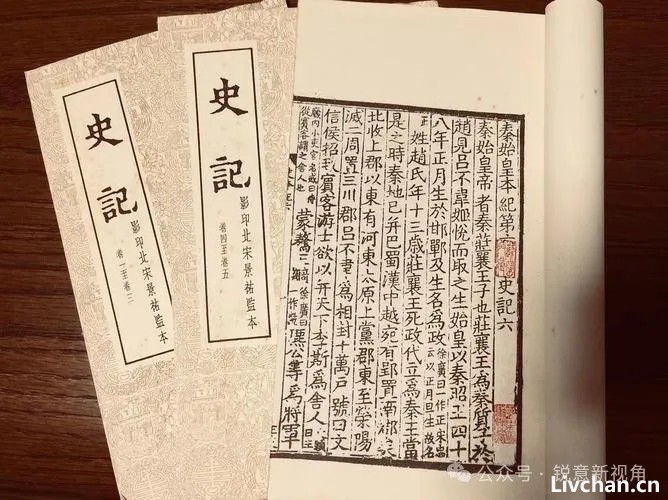 史記
影印北宋景祐監本
卷一至卷三
史記
影印北宋景祐監本
卷四至卷五
秦始皇本紀第六 史記六
秦始皇帝者秦莊襄王子也莊襄王為秦質子於
趙見吕不韋姬悅而取之生始皇以秦昭王四十
八年正月生於邯鄲及生名為政徐廣曰一作正宋忠云以正月旦生故名正
姓趙氏年十三歲莊襄王死政代立為秦王當
是之時秦地已并巴蜀漢中越宛有郢置南郡矣
北收上郡以東有河東太原上黨郡東至滎陽
滅二周置三川郡吕不韋為相封十萬戶號曰文
信侯招致賓客游士欲以并天下李斯為舍人文穎曰主
廄内小吏官名或曰侍從賓客謂之舍人也蒙驁王齮徐廣曰一作齕麃公等為將軍
公众号·锐意新视角
Livchan.cn